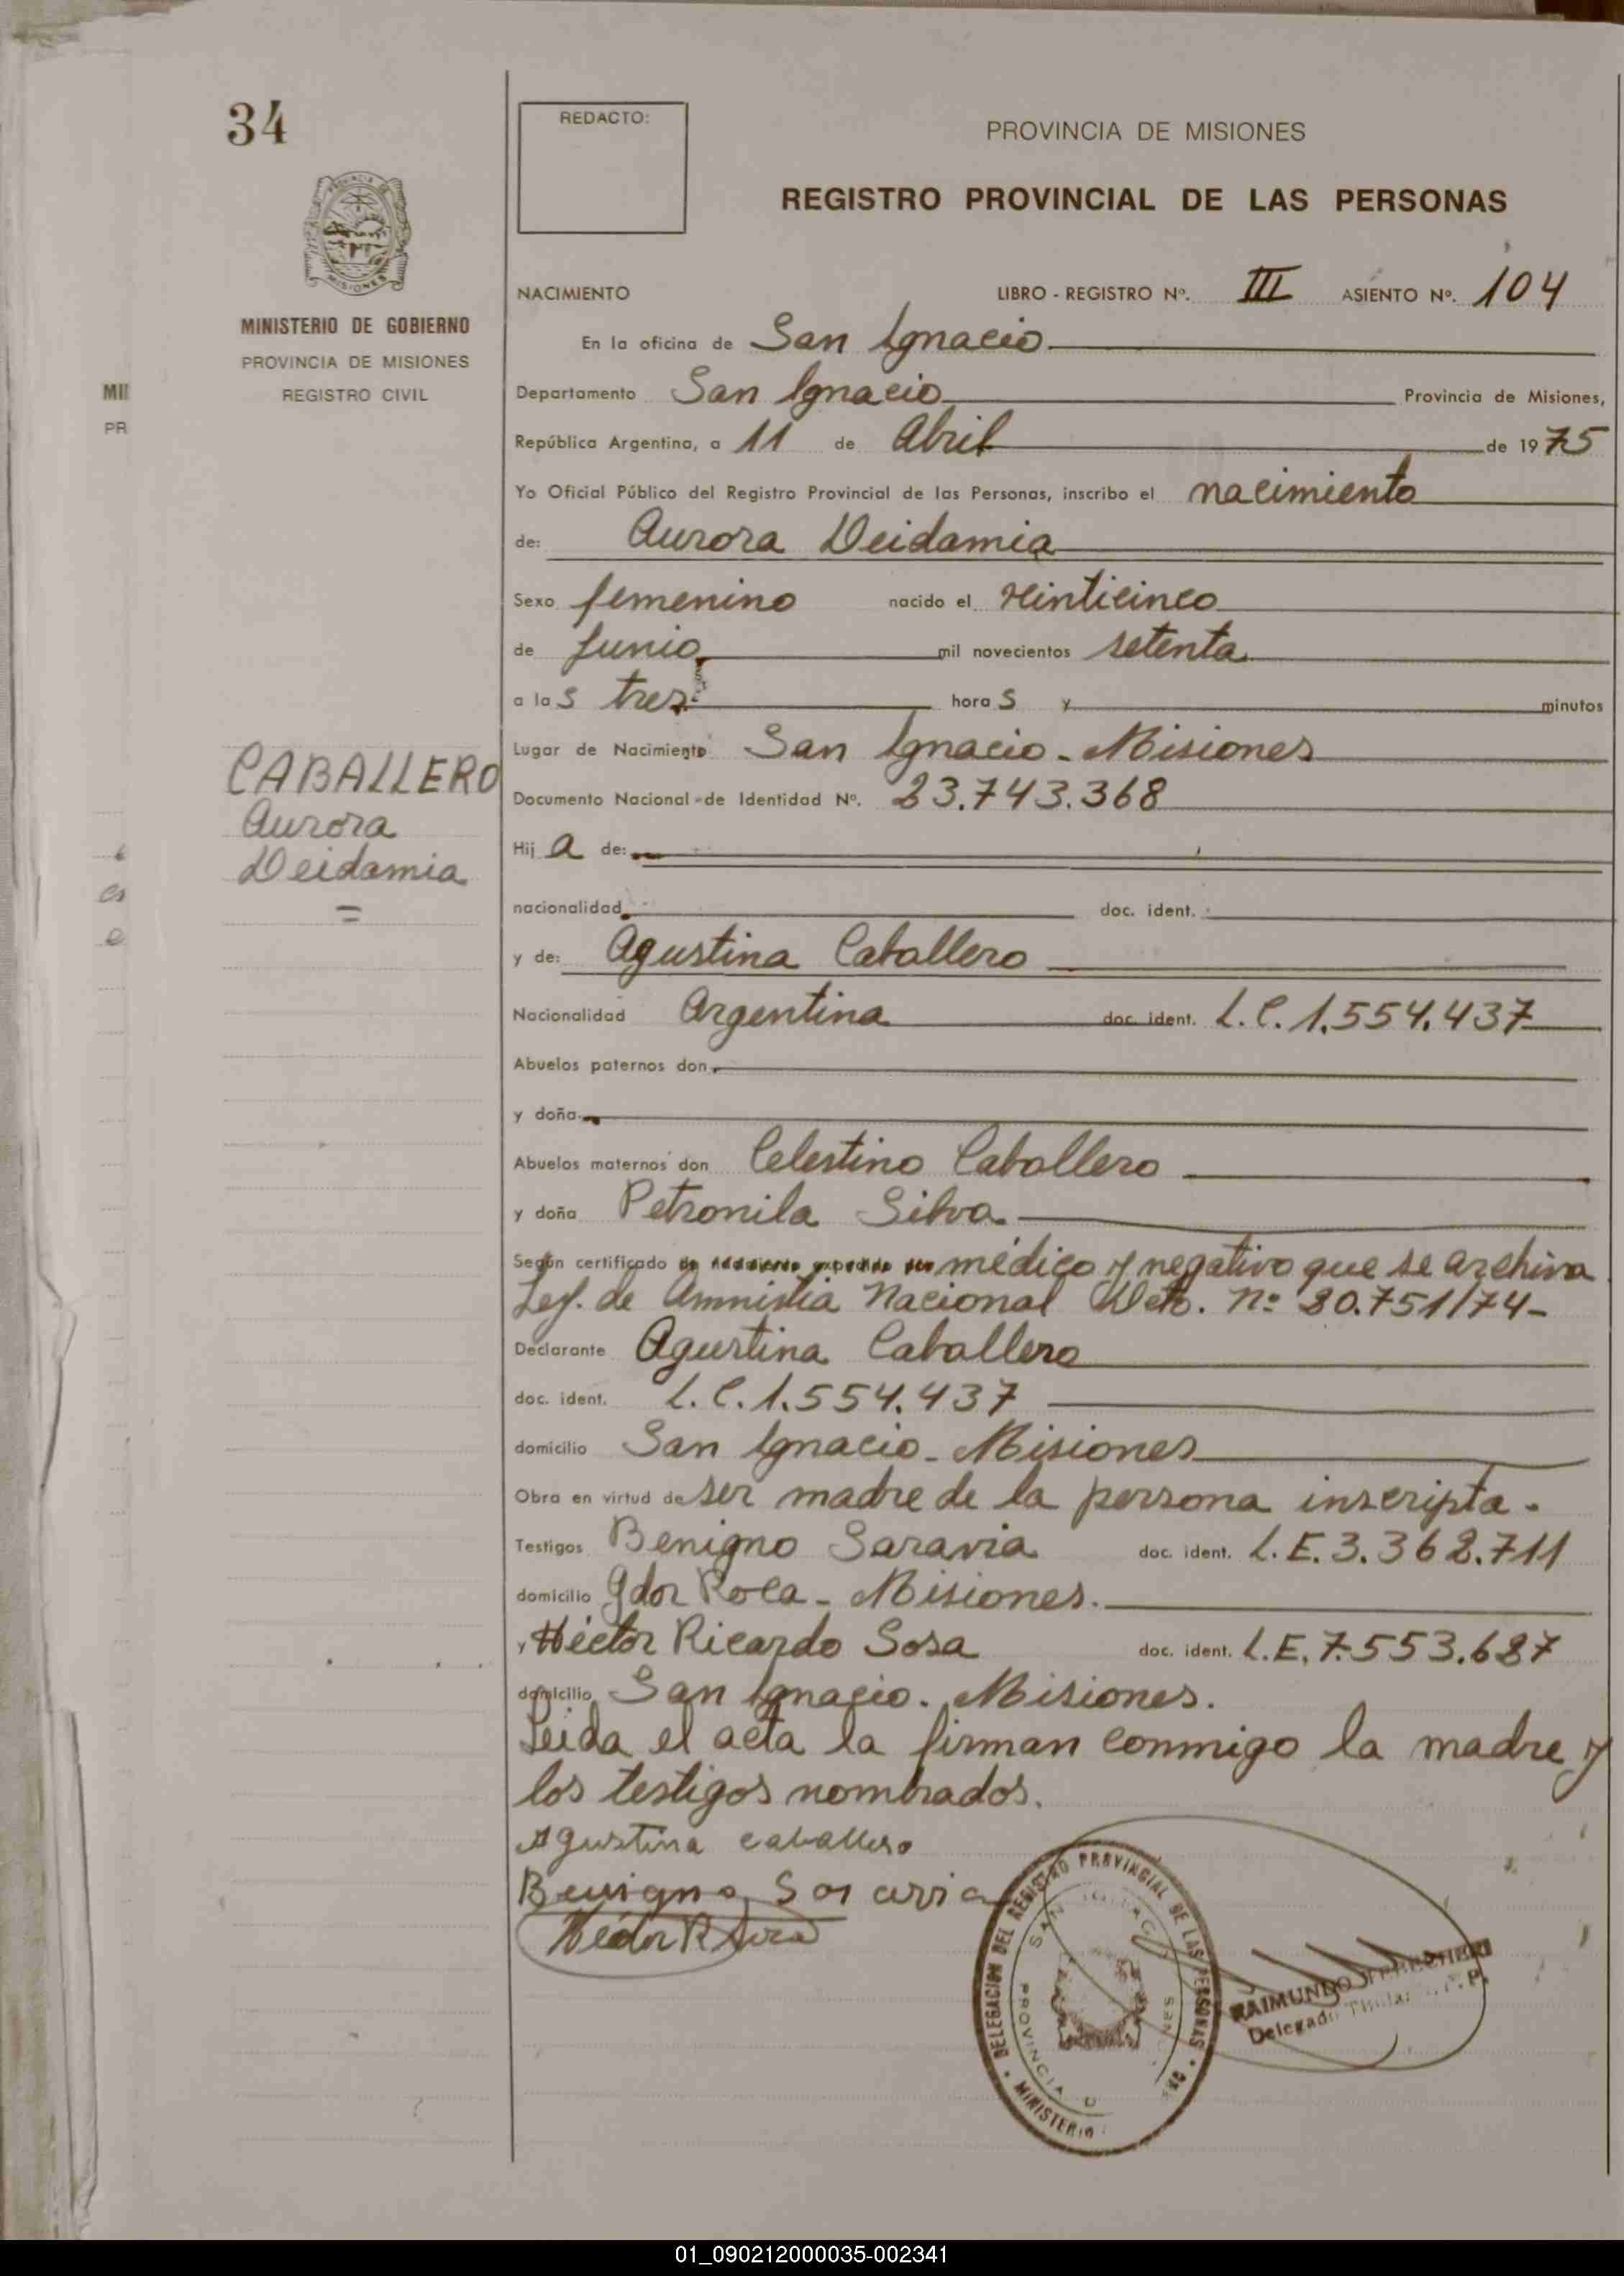 34
REDACTO:
PROVINCIA DE MISIONES
REGISTRO PROVINCIAL DE LAS PERSONAS
MINISTERIO DE GOBIERNO
PROVINCIA DE MISIONES
REGISTRO CIVIL
MII
PR
NACIMIENTO LIBRO - REGISTRO Nº. III ASIENTO Nº. 104
En la oficina de San Ignacio
Departamento San Ignacio Provincia de Misiones,
República Argentina, a 11 de Abril de 1975
Yo Oficial Público del Registro Provincial de las Personas, inscribo el nacimiento
de: Aurora Deidamia
Sexo femenino nacido el veinticinco
de Junio mil novecientos setenta
a las tres horas y minutos
Lugar de Nacimiento San Ignacio - Misiones
CABALLERO
Aurora
Deidamia
=
Documento Nacional de Identidad Nº. 23.743.368
Hija de:
nacionalidad doc. ident.
y de: Agustina Caballero
Nacionalidad Argentina doc. ident. L.C. 1.554.437
Abuelos paternos don
y doña
Abuelos maternos don Celestino Caballero
y doña Petronila Silva
Según certificado médico y negativo que se archiva
Ley. de Amnistia Nacional Dcto. Nº 20.751/74-
Declarante Agustina Caballero
doc. ident. L.C. 1.554.437
domicilio San Ignacio - Misiones
Obra en virtud de ser madre de la persona inscripta.
Testigos Benigno Saravia doc. ident. L.E. 3.362.711
domicilio Gdor Roca - Misiones.
y Héctor Ricardo Sosa doc. ident. L.E. 7.553.687
domicilio San Ignacio. Misiones.
Leida el acta la firman conmigo la madre y
los testigos nombrados.
Agustina caballero
Benigno Saravia
Héctor R Sosa
DELEGACION DEL REGISTRO PROVINCIAL DE LAS PERSONAS
SAN
PROVINCIA D
MINISTERIO
RAIMUNDO
Delegado Titular
01_090212000035-002341